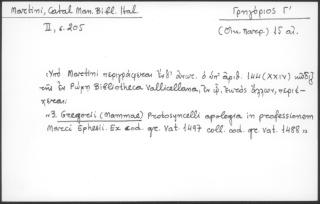 Martini, Catal. Man. Bibl. Ital.
II, σ. 205
Γρηγόριος Γ'
(Οἰκ. Πατρ.) 15 αἰ.
Ὑπὸ Martini περιγράφεται ἔνθ' ἀνωτ. ὁ ὑπ' ἀριθ. 144 (XXIV) κῶδιξ
τῆς ἐν Ρώμῃ Bibliotheca Vallicellana, ἐν ᾧ, ἐκτὸς ἄλλων, περιέ-
χεται:
«3. Gregorii (Mammae) Protosyncelli apologia in professionem
Marci Ephesii. Ex cod. gr. Vat. 1497 coll. cod. gr. Vat. 1488»